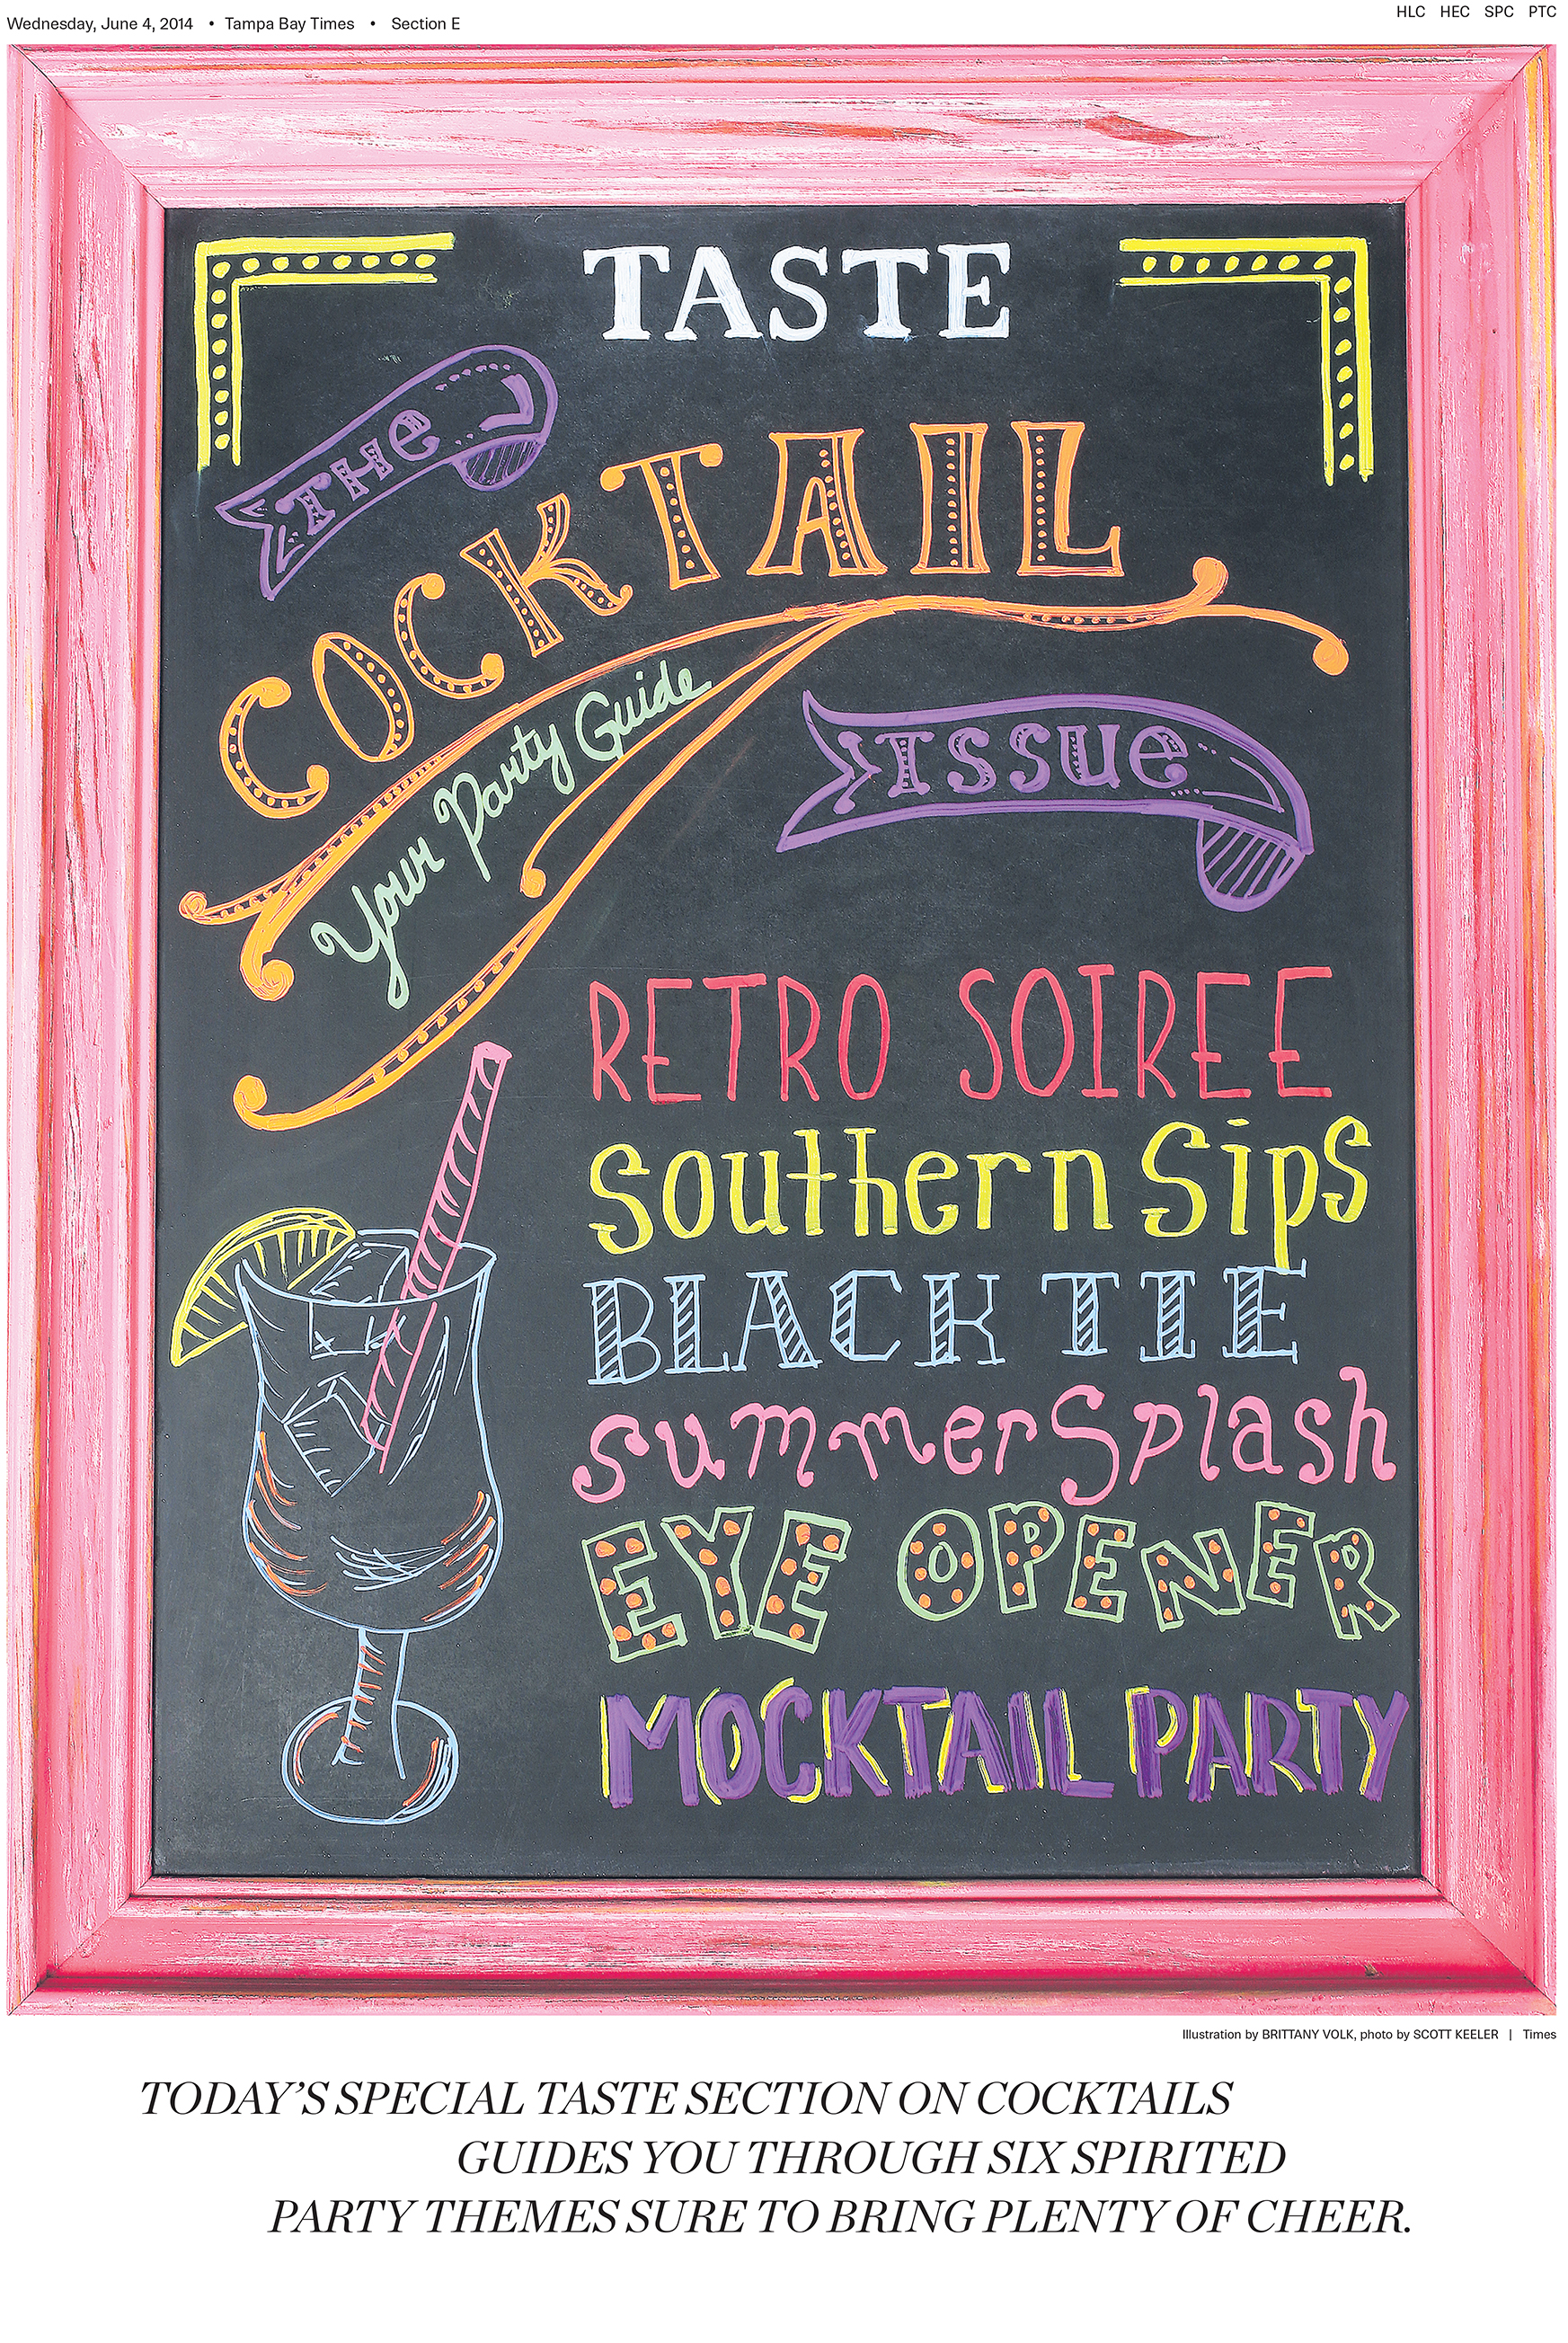 Wednesday, June 4, 2014 • Tampa Bay Times • Section E
HLC HEC SPC PTC
TASTE
THe
COCKTAIL
Your Party Guide
Issue
RETRO SOIREE
Southern Sips
BLACK TIE
summer Splash
EYE OPENER
MOCKTAIL PARTY
Illustration by BRITTANY VOLK, photo by SCOTT KEELER | Times
TODAY’S SPECIAL TASTE SECTION ON COCKTAILS
GUIDES YOU THROUGH SIX SPIRITED
PARTY THEMES SURE TO BRING PLENTY OF CHEER.